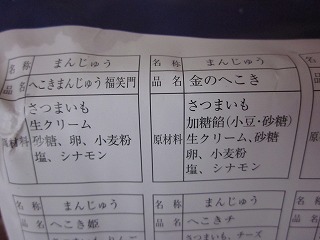 名称 まんじゅう
品名 へこきまんじゅう福笑門
原材料 さつまいも
生クリーム
砂糖、卵、小麦粉
塩、シナモン
名称 まんじゅう
品名 金のへこき
原材料 さつまいも
加糖餡(小豆・砂糖)
生クリーム、砂糖
卵、小麦粉
塩、シナモン
名称 まんじゅう
品名 へこき姫
名称 まんじゅう
品名 へこきチ
さつまいも、チーズ